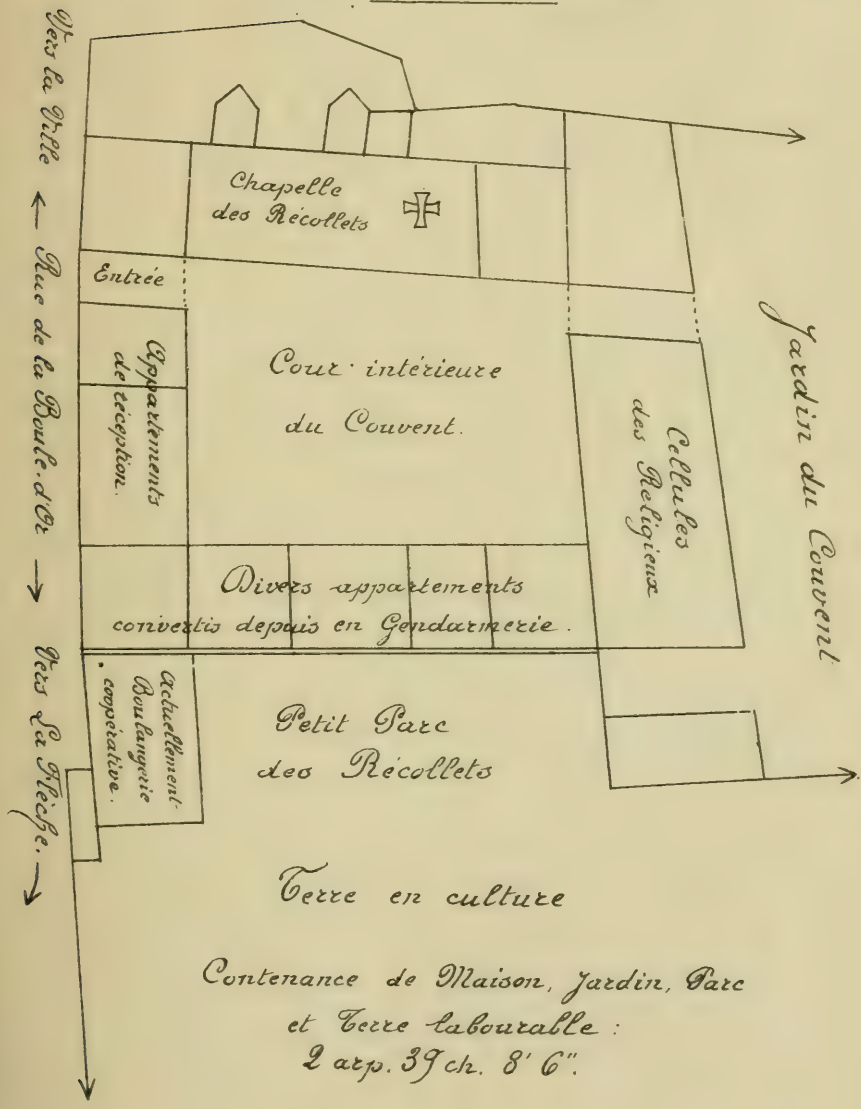 Vers la Ville ← Rue de la Boule-d'Or → Vers La Flèche. →
Chapelle
des Récollets
Entrée
Appartements
de réception.
Cour intérieure
du Couvent.
Cellules
des Religieux
Jardin du Couvent
Divers appartements
convertis depuis en Gendarmerie.
Actuellement
Boulangerie
coopérative.
Petit Parc
des Récollets
Terre en culture
Contenance de Maison, Jardin, Parc
et Terre labourable :
2 arp. 39 ch. 8' 6".